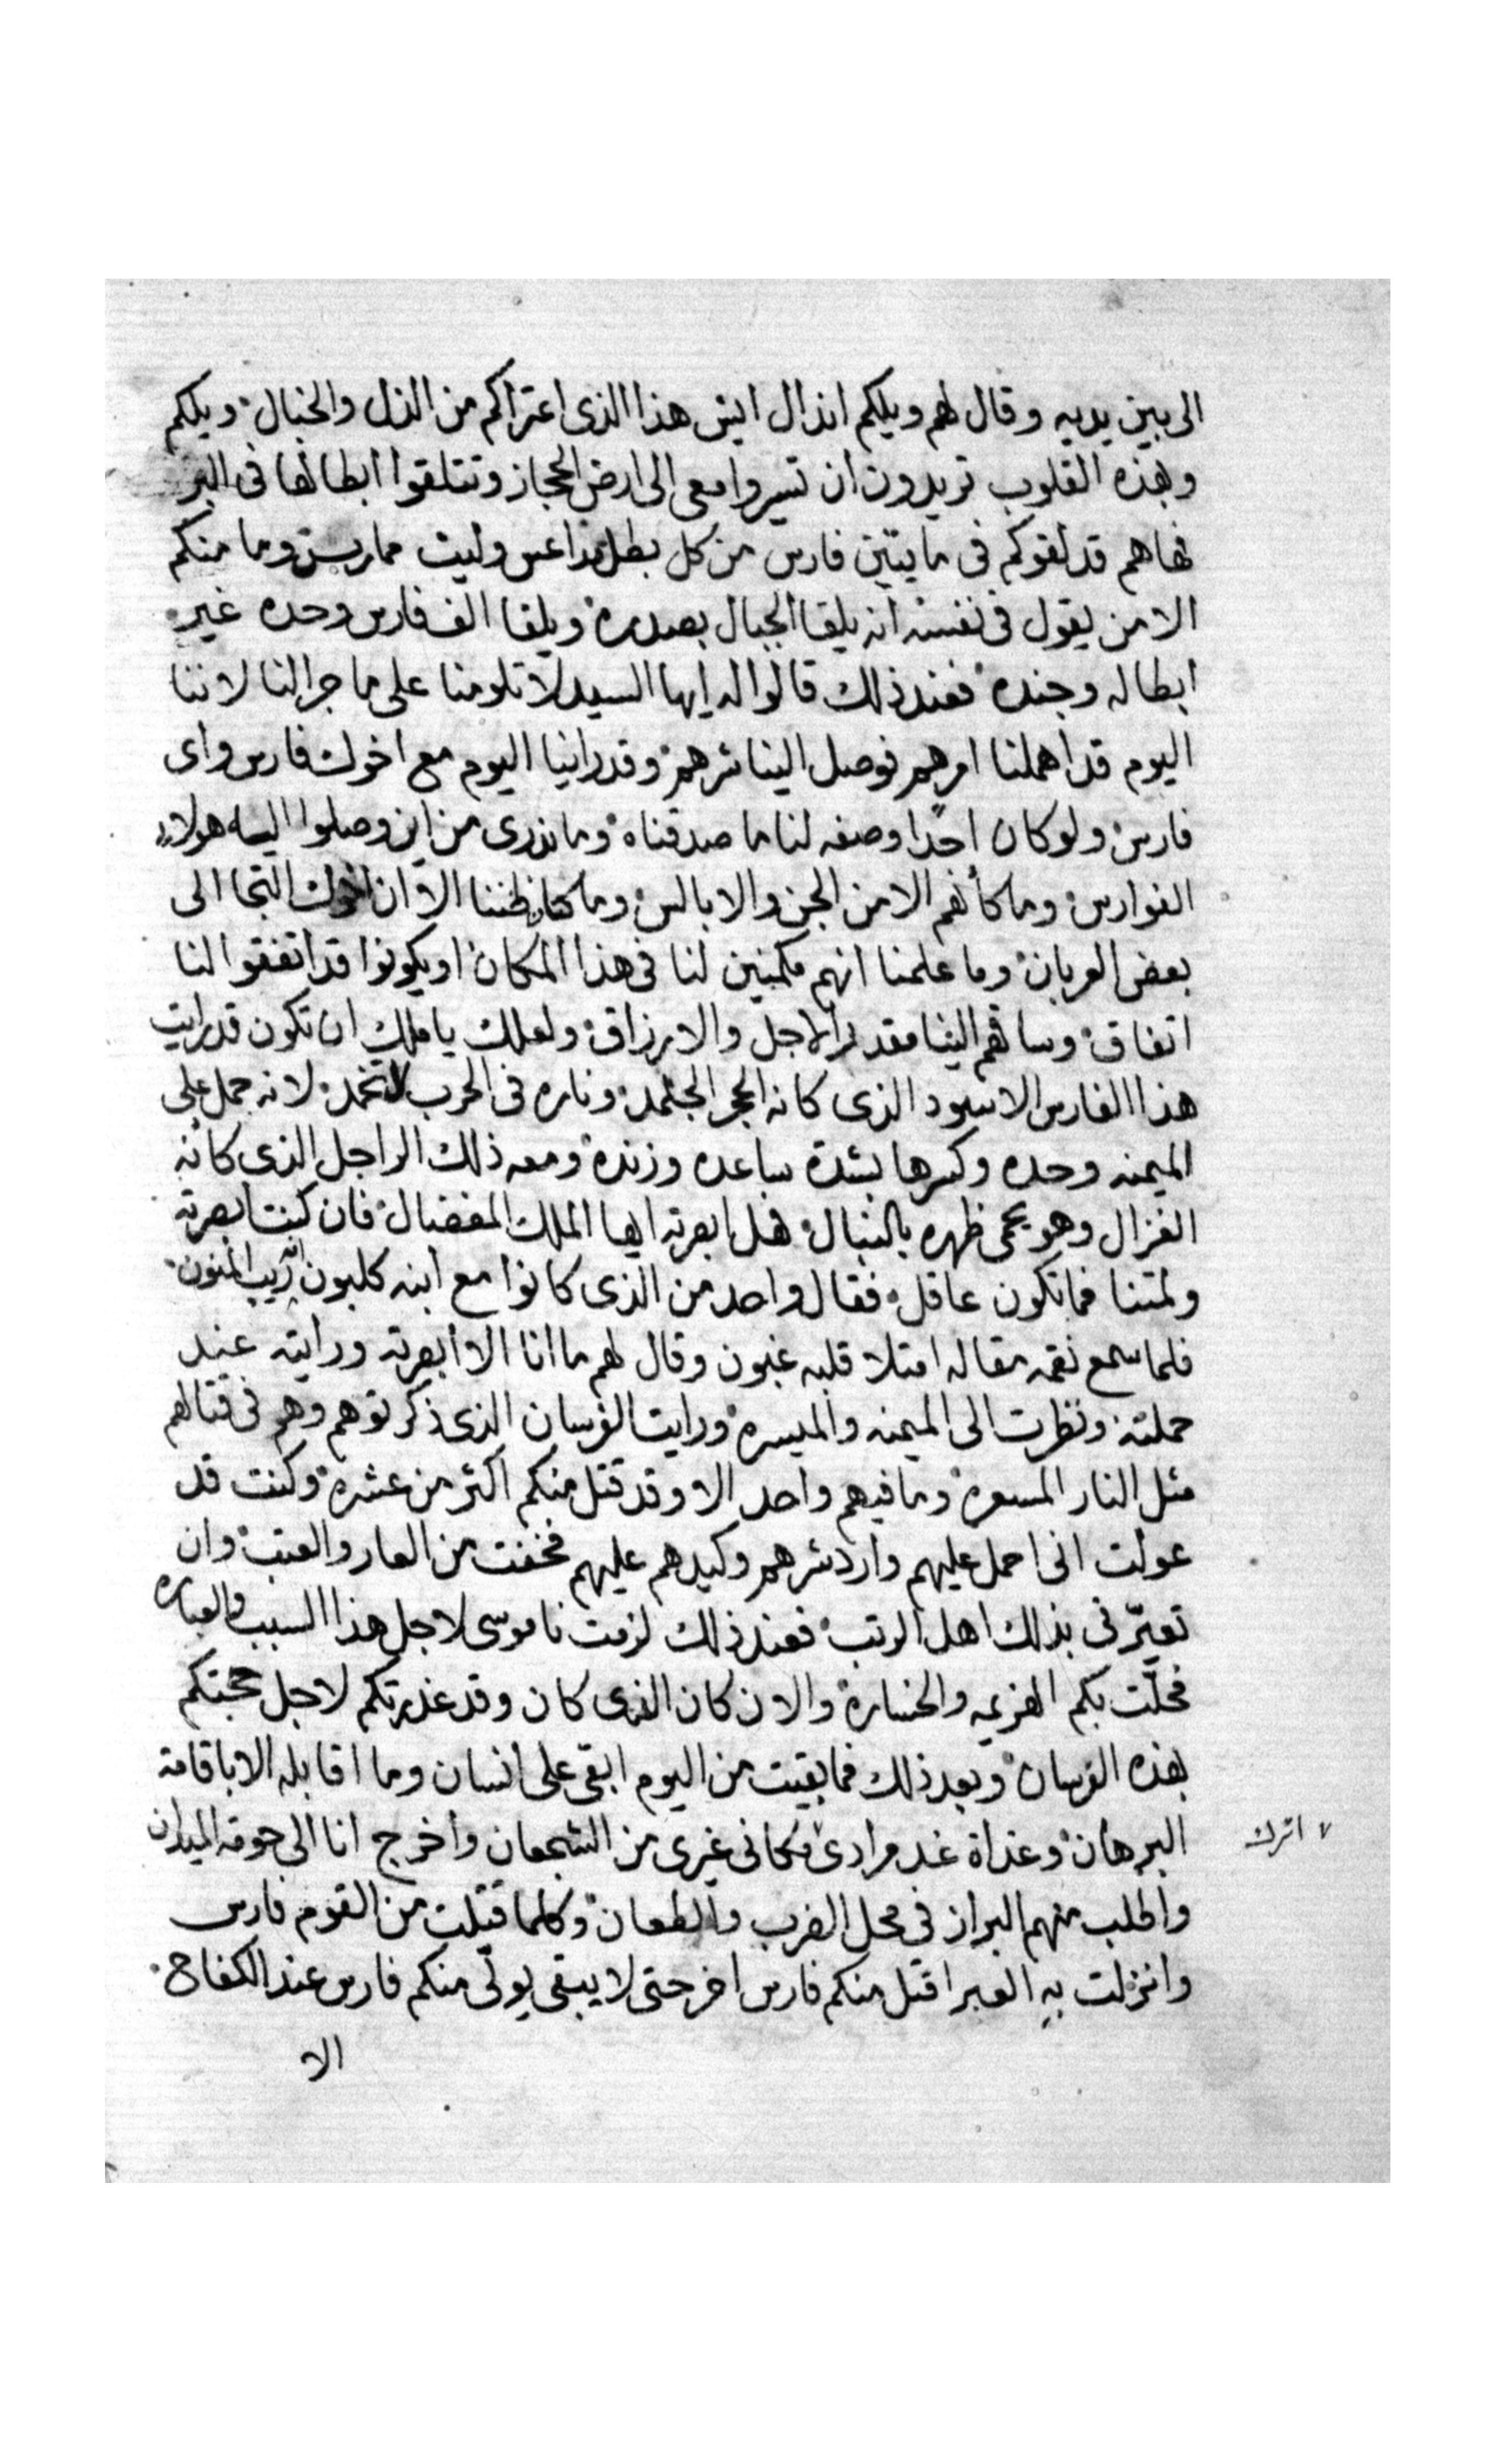 الى بين يديه وقال لهم ويلكم انذال ايش هذا الذى اعتراكم من الذل والخبال ويلكم
وبهذه القلوب تريدون ان تسيروا معى الى ارض الحجاز وتتلقوا ابطالها فى البر
فهاهم قد لقوكم فى مايتين فارس من كل بطل مداعس وليث ممارس وما منكم
الا من يقول فى نفسه انه يلقا الجبال بصدره ويلقا الف فارس وحده غير
ابطاله وجنده فعند ذلك قالوا له ايها السيد لا تلومنا على ما جرا لنا لاننا
اليوم قد اهملنا امرهم فوصل الينا شرهم وقد راينا اليوم مع اخوك فارس واى
فارس ولو كان احدًا وصفه لنا ما صدقناه وما ندرى من اين وصلوا اليه هولاء
الفوارس وما كأنهم الا من الجن والابالس وما كان ظننا الا ان اخوك التجا الى
بعض العربان وما علمنا انهم مكمنين لنا فى هذا المكان او يكونوا قد اتفقوا لنا
اتفاق وساقهم الينا مقدر الاجل والارزاق ولعلك يا ملك ان تكون قد رايت
هذا الفارس الاسود الذى كانه الحجر الجلمد وناره فى الحرب لا تخمد لانه حمل على
الميمنه وحده وكسرها بشدة ساعده وزنده ومعه ذلك الراجل الذى كأنه
الغزال وهو يحمى ظهره بالنبال فهل ابصرته ايها الملك المفضال فان كنت ابصرته
ولمتنا فما تكون عاقل فقال واحد من الذى كانوا مع ابنه كلبون انه ريب المنون
فلما سمع نقمه مقاله امتلا قلبه غبون وقال لهم ما انا الا ابصرته ورايته عند
حملته ونظرت الى الميمنه والميسره ورايت الفرسان الذى ذكرتوهم وهم فى قتالهم
مثل النار المسعره وما فيهم واحد الا وقد قتل منكم اكثر من عشره وكنت قد
عولت انى احمل عليهم وارد شرهم وكيدهم عليهم فخفت من العار والعتب وان
تعيّرنى بذلك اهل الرتب فعند ذلك لزمت ناموسى لاجل هذا السبب والعباره
فحلّت بكم الهزيمه والخساره والان كان الذى كان وقد عذرتكم لاجل حجتكم
بهذه الفرسان وبعد ذلك فما بقيت من اليوم ابقى على انسان وما اقابله الا باقامة
البرهان وغداة غد مرادى مكانى غيرى من الشجعان وأخرج انا الى حومة الميدان
٧ اترك
واطلب منهم البراز فى محل الضرب والطعان وكلما قتلت من القوم فارس
وانزلت به العبر اقتل منكم فارس اخر حتى لا يبقى يولى منكم فارس عند الكفاح
الا